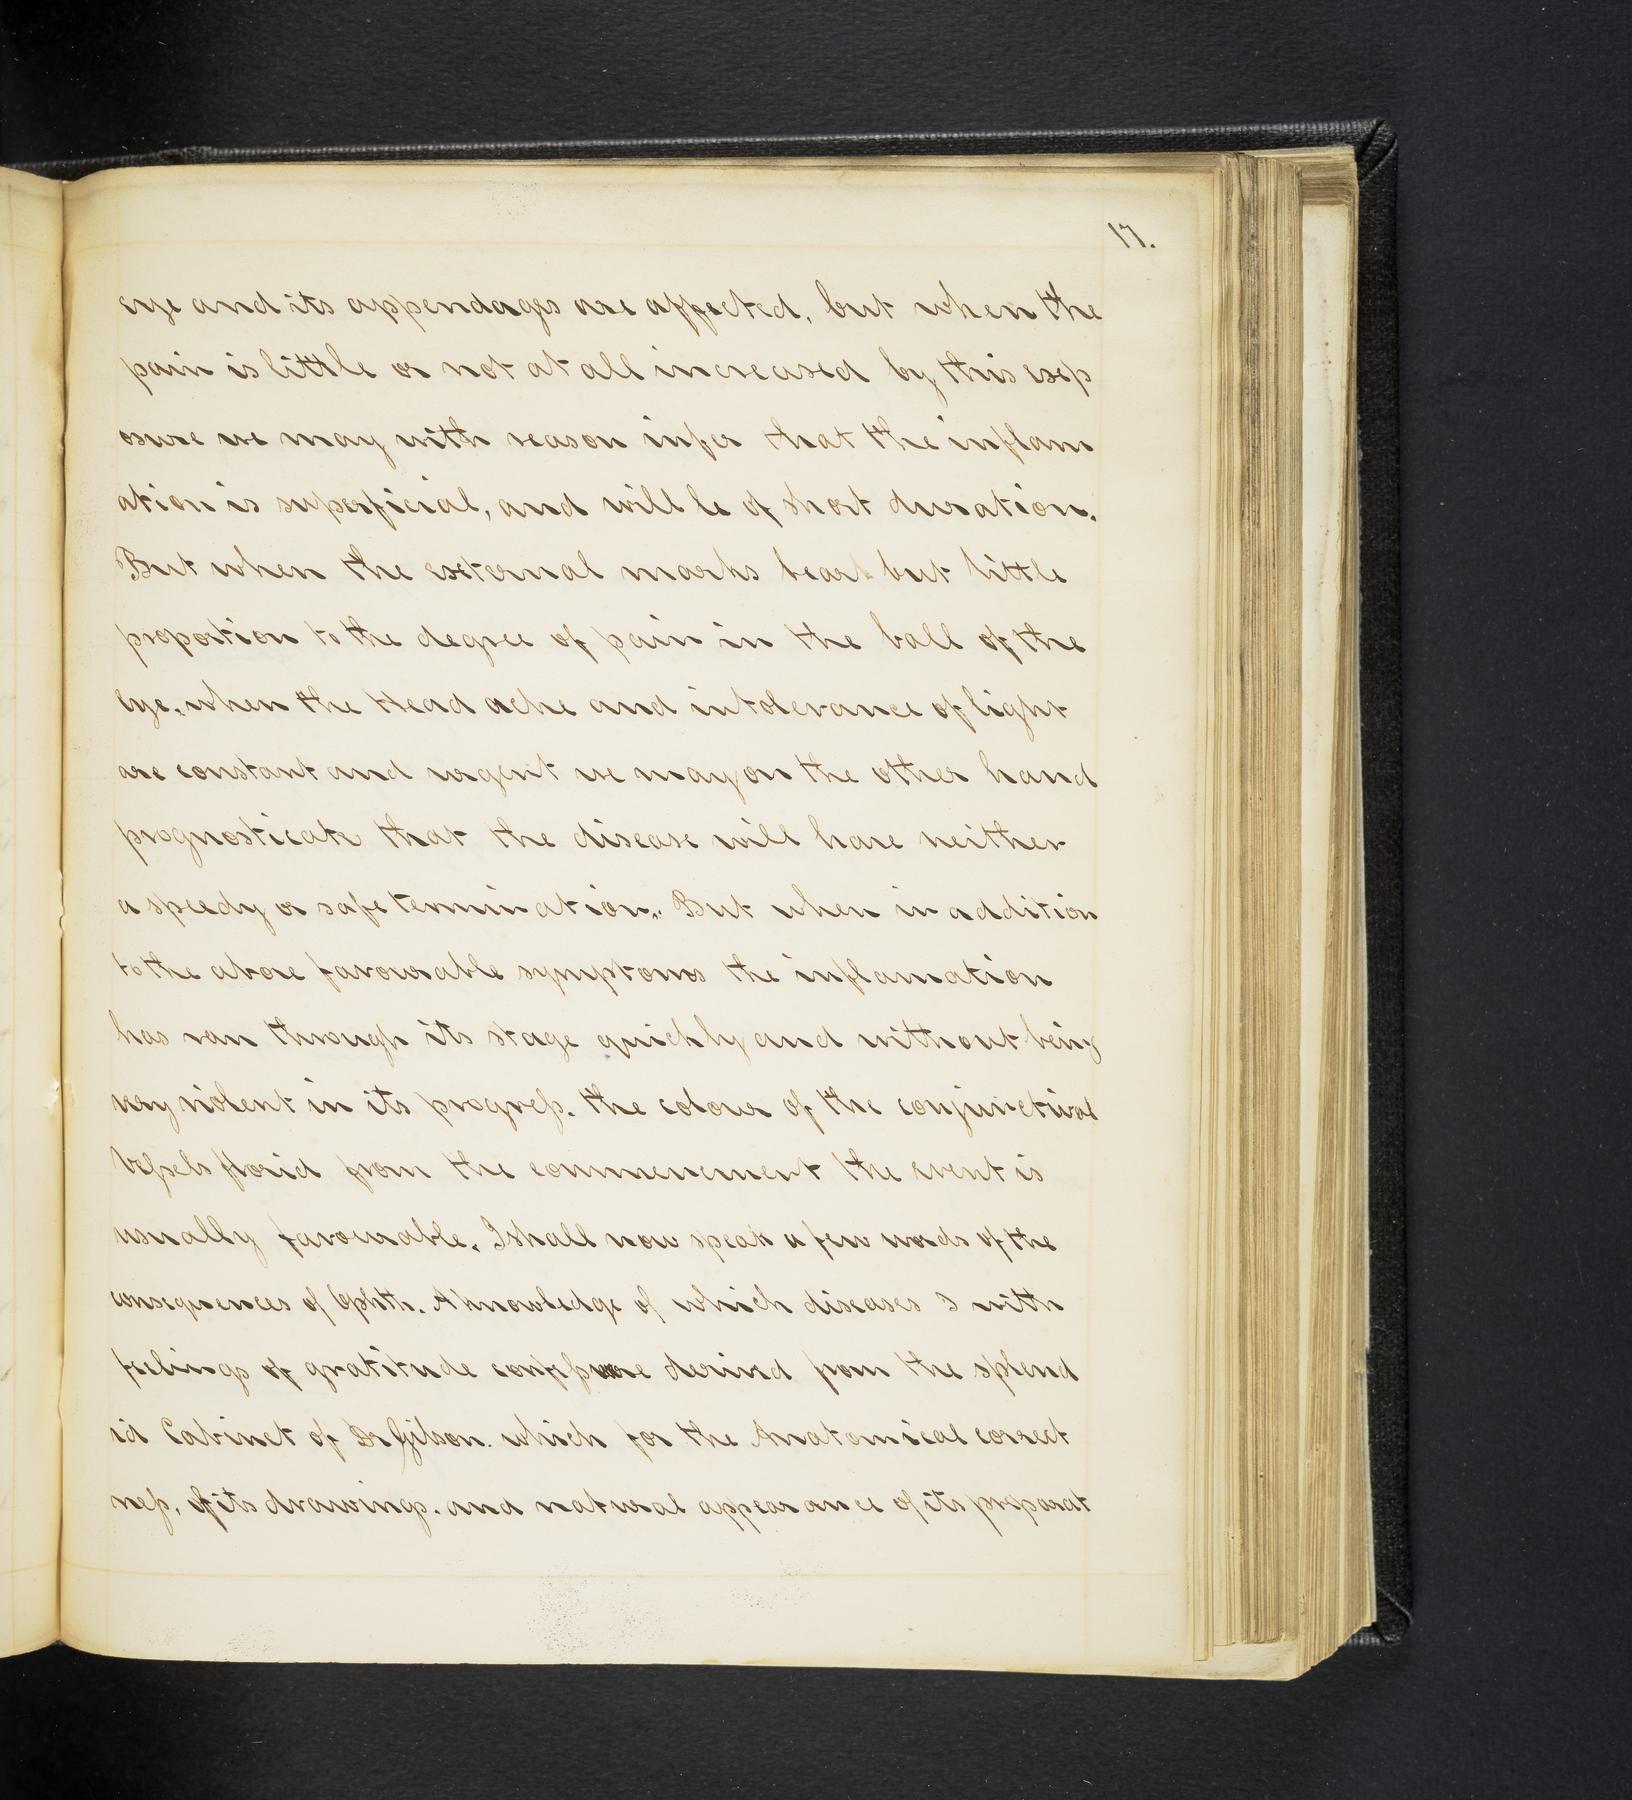 17.
eye and its appendages are affected, but when the
pain is little or not at all increased by this exp
osure we may with reason infer that the inflam
ation is superficial, and will be of short duration.
But when the external marks bear but little
proportion to the degree of pain in the ball of the
eye, when the Head ache and intolerance of light
are constant and urgent we may on the other hand
prognosticate that the disease will have neither
a speedy or safe termination. But when in addition
to the above favourable symptoms the inflamation
has ran through its stage quickly and without being
very violent in its progress. the colour of the conjunctival
Vessels florid from the commencement the event is
usually favourable. I shall now speak a few words of the
consequences of Ophth. A knowledge of which diseases I with
feelings of gratitude confess derived from the splend
id Cabinet of Dr Gibson. which for the Anatomical correct
ness, of its drawings. and natural appearance of its preparat